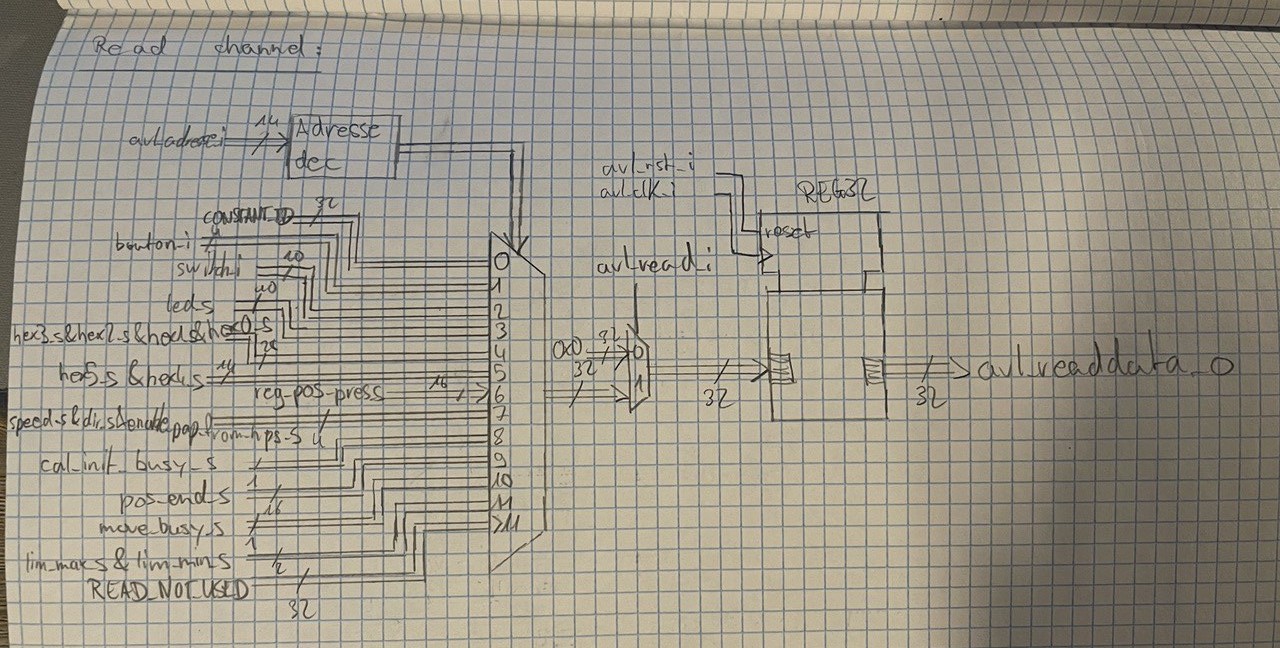 Read channel:
avl_adresse_i
14
Adresse
dec
CONSTANT_ID
32
bouton_i
4
switch_i
10
led_s
10
hex3_s&hex2_s&hex1_s&hex0_s
28
hex5_s & hex4_s
14
reg-pos-press
16
speed_s&dir_s&enable_pap_from_hps_s
4
cal_init_busy_s
1
pos_end_s
16
move_busy_s
1
lim_max_s & lim_min_s
2
READ_NOT_USED
32
0
1
2
3
4
5
6
7
8
9
10
11
>11
avl_read_i
0x0
32
32
0
1
32
avl_rst_i
avl_clk_i
REG32
reset
32
avl_readdata_o